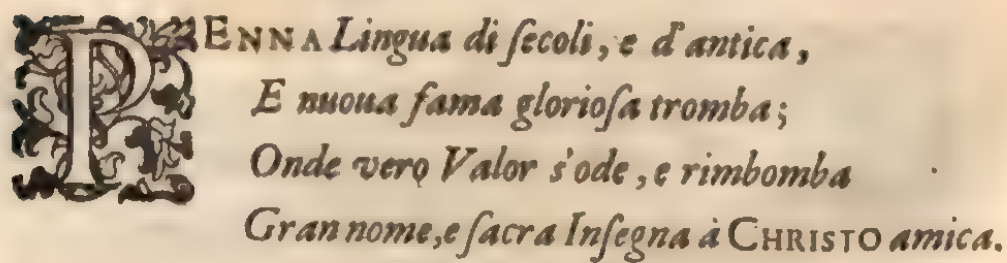 PENNA Lingua di ſecoli, e d'antica,
E nuoua fama glorioſa tromba;
Onde vero Valor s'ode, e rimbomba
Gran nome, e ſacra Inſegna à CHRISTO amica.